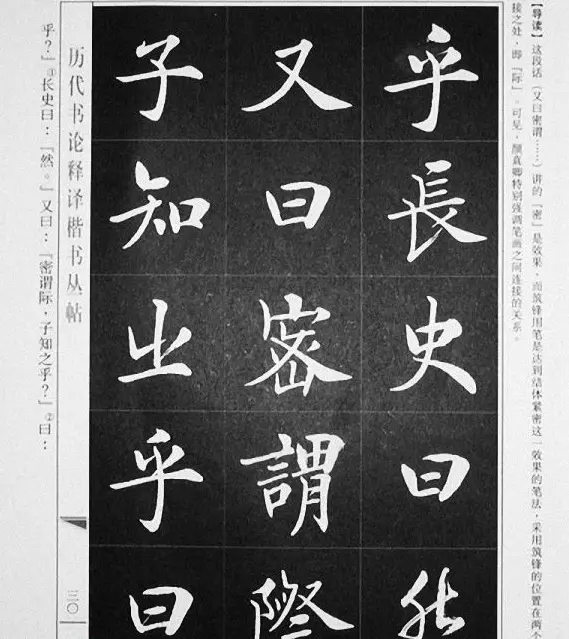 【导读】这段话（又曰密谓……）讲的『密』是效果，而筑锋用笔是达到结体紧密这一效果的笔法，采用筑锋的位置在两个
接之处，即『际』。可见，颜真卿特别强调笔画之间连接的关系。
乎長史曰然
又曰密謂際
子知之乎曰
历代书论释译楷书丛帖
三〇
乎？』①长史曰：『然。』又曰：『密谓际，子知之乎？』②曰：